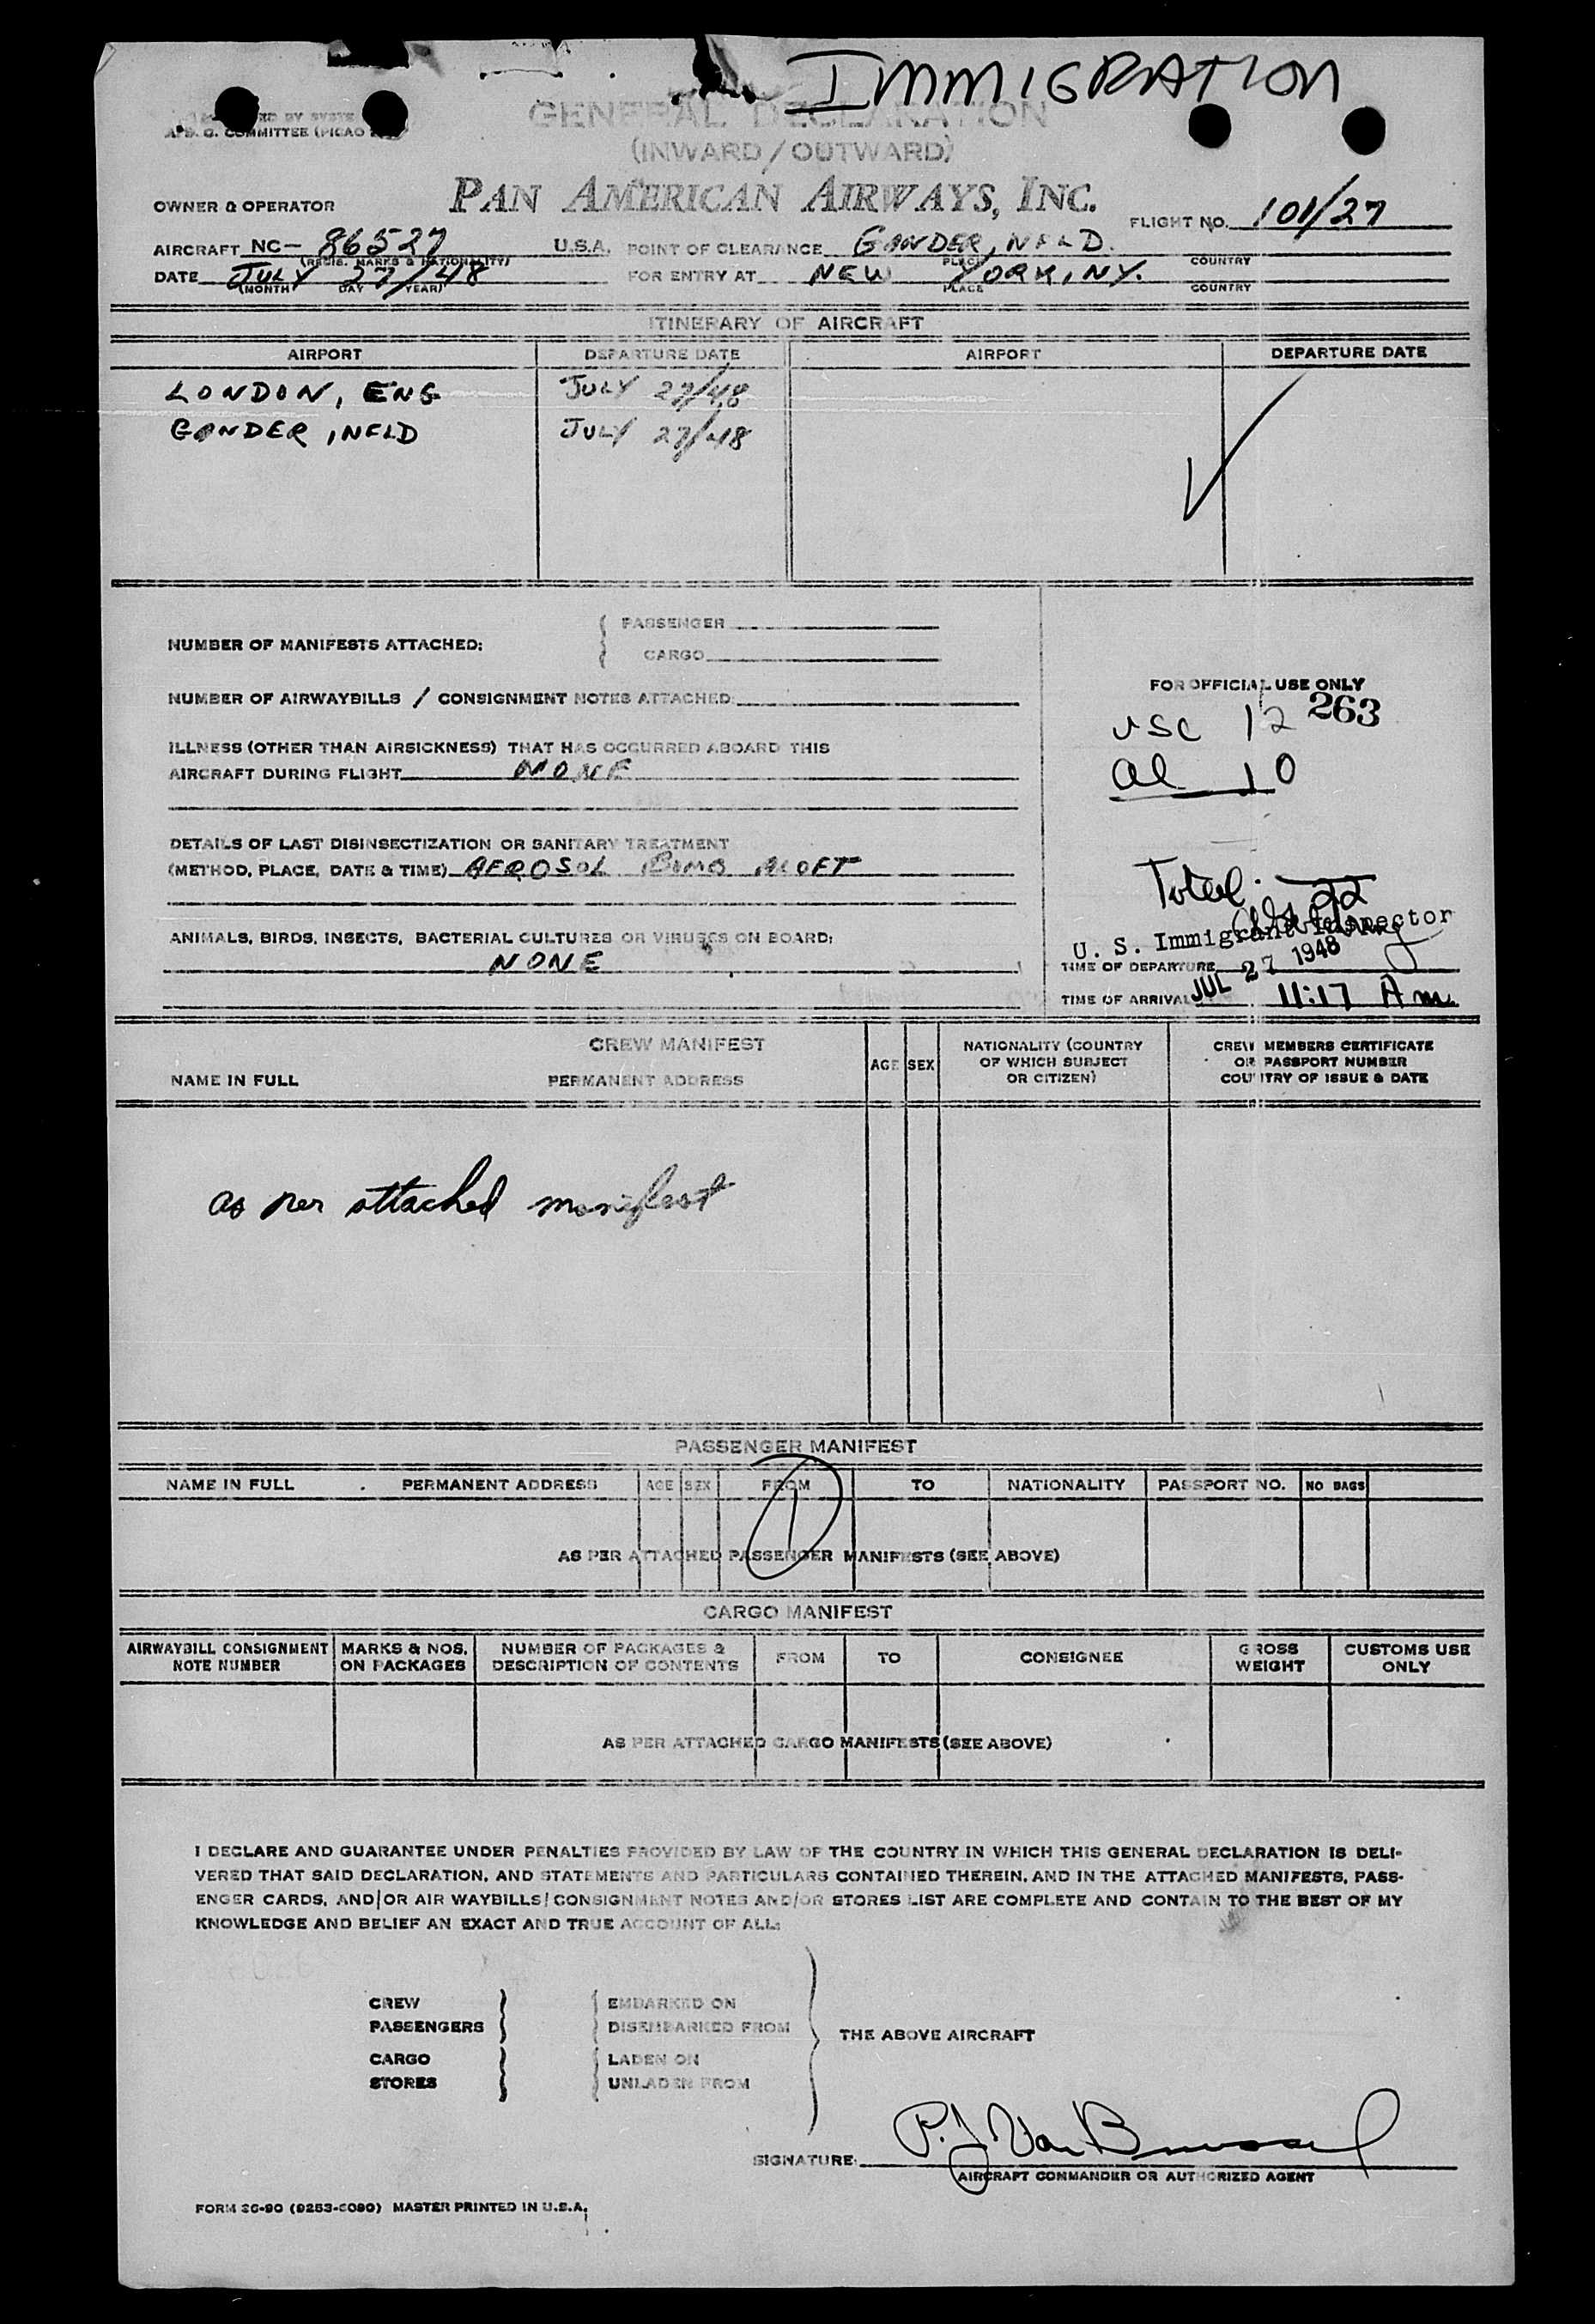 IMMIGRATION
COMMITTEE (PICAO
GENERAL DECLARATION
(INWARD / OUTWARD)
OWNER & OPERATOR PAN AMERICAN AIRWAYS, INC. FLIGHT NO. 101/27
AIRCRAFT NC- 86527 U.S.A. POINT OF CLEARANCE GANDER, NFLD.
(REGIS. MARKS & NATIONALITY) PLACE COUNTRY
DATE JULY 27/48 FOR ENTRY AT NEW YORK, NY.
(MONTH DAY YEAR) PLACE COUNTRY
ITINERARY OF AIRCRAFT
AIRPORT DEPARTURE DATE AIRPORT DEPARTURE DATE
LONDON, ENG JULY 27/48
GANDER, NFLD JULY 27/48
NUMBER OF MANIFESTS ATTACHED: PASSENGER
CARGO
NUMBER OF AIRWAYBILLS / CONSIGNMENT NOTES ATTACHED:
ILLNESS (OTHER THAN AIRSICKNESS) THAT HAS OCCURRED ABOARD THIS
AIRCRAFT DURING FLIGHT NONE
DETAILS OF LAST DISINSECTIZATION OR SANITARY TREATMENT
(METHOD, PLACE, DATE & TIME) AEROSOL BOMB ALOFT
ANIMALS, BIRDS, INSECTS, BACTERIAL CULTURES OR VIRUSES ON BOARD:
NONE
FOR OFFICIAL USE ONLY
263
USC 12
al 10
Total 22
U. S. Immigrant Inspector
TIME OF DEPARTURE
JUL 27 1948
TIME OF ARRIVAL 11:17 Am.
CREW MANIFEST
NAME IN FULL PERMANENT ADDRESS AGE SEX
NATIONALITY (COUNTRY
OF WHICH SUBJECT
OR CITIZEN)
CREW MEMBERS CERTIFICATE
OR PASSPORT NUMBER
COUNTRY OF ISSUE & DATE
as per attached manifest
PASSENGER MANIFEST
NAME IN FULL PERMANENT ADDRESS AGE SEX FROM TO NATIONALITY PASSPORT NO. NO BAGS
1
AS PER ATTACHED PASSENGER MANIFESTS (SEE ABOVE)
CARGO MANIFEST
AIRWAYBILL CONSIGNMENT
NOTE NUMBER
MARKS & NOS.
ON PACKAGES
NUMBER OF PACKAGES &
DESCRIPTION OF CONTENTS
FROM TO CONSIGNEE
GROSS
WEIGHT
CUSTOMS USE
ONLY
AS PER ATTACHED CARGO MANIFESTS (SEE ABOVE)
I DECLARE AND GUARANTEE UNDER PENALTIES PROVIDED BY LAW OF THE COUNTRY IN WHICH THIS GENERAL DECLARATION IS DELI-
VERED THAT SAID DECLARATION, AND STATEMENTS AND PARTICULARS CONTAINED THEREIN, AND IN THE ATTACHED MANIFESTS, PASS-
ENGER CARDS, AND/OR AIR WAYBILLS/CONSIGNMENT NOTES AND/OR STORES LIST ARE COMPLETE AND CONTAIN TO THE BEST OF MY
KNOWLEDGE AND BELIEF AN EXACT AND TRUE ACCOUNT OF ALL:
CREW EMBARKED ON
PASSENGERS DISEMBARKED FROM
THE ABOVE AIRCRAFT
CARGO LADEN ON
STORES UNLADEN FROM
SIGNATURE: P. J. Van
AIRCRAFT COMMANDER OR AUTHORIZED AGENT
FORM MASTER PRINTED IN U.S.A.